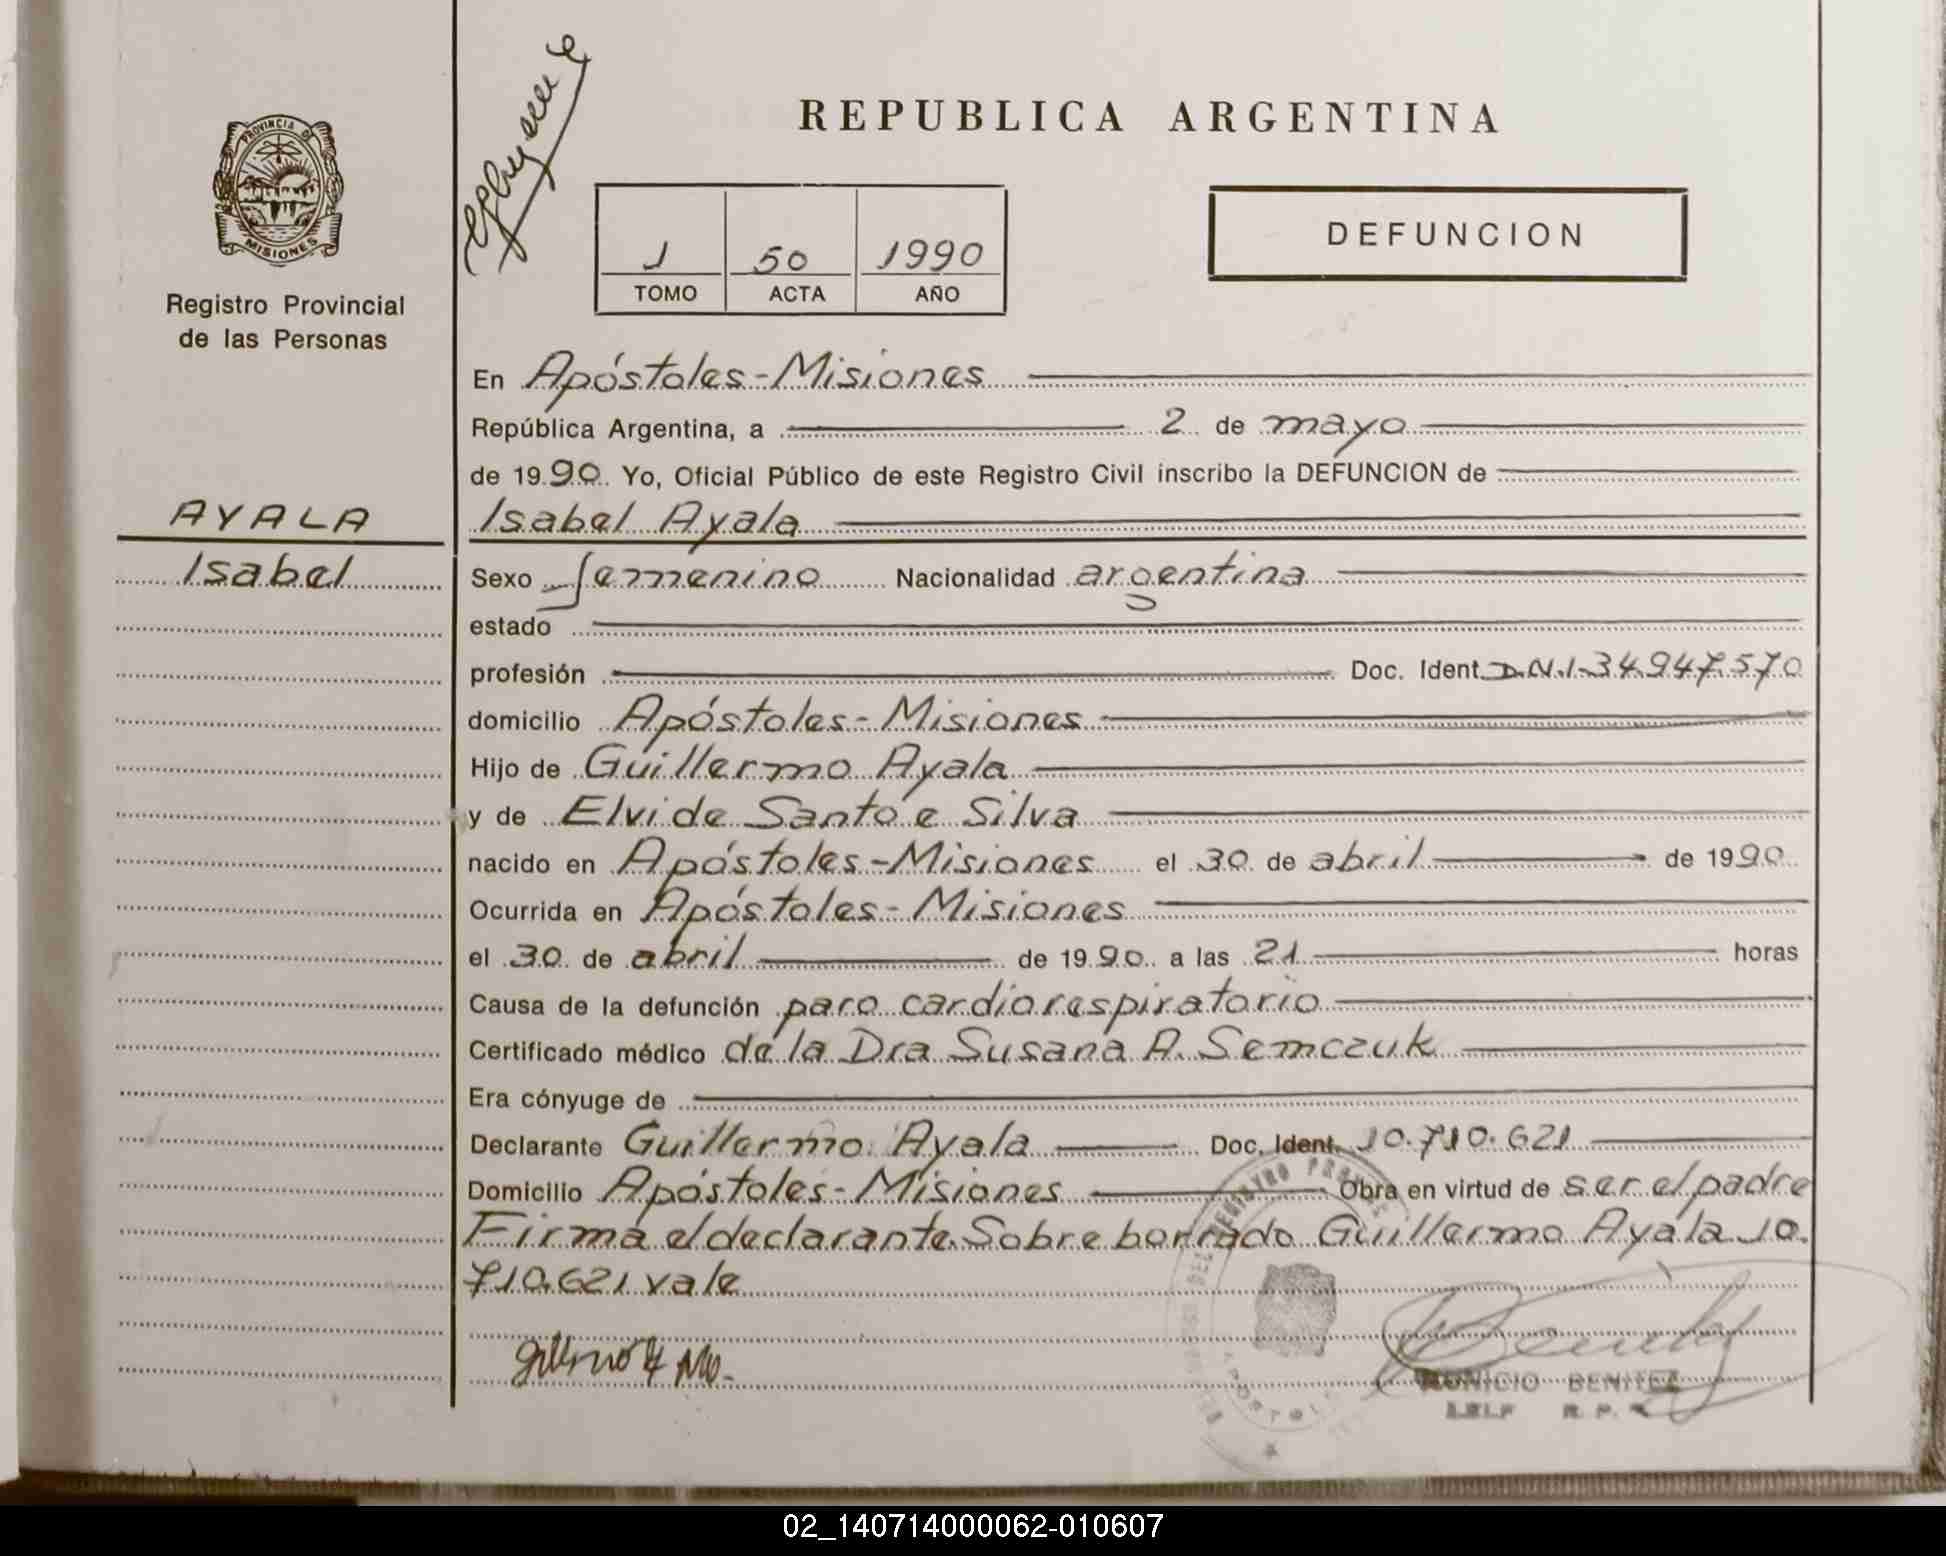 REPUBLICA ARGENTINA
PROVINCIA DE
MISIONES
Registro Provincial
de las Personas
1 50 1990
TOMO ACTA AÑO
DEFUNCION
AYALA
Isabel
En Apóstoles-Misiones
República Argentina, a 2 de mayo
de 1990. Yo, Oficial Público de este Registro Civil inscribo la DEFUNCION de
Isabel Ayala
Sexo femenino Nacionalidad argentina
estado
profesión Doc. Ident. D.N.I-34.947.570
domicilio Apóstoles-Misiones
Hijo de Guillermo Ayala
y de Elvi de Santo e Silva
nacido en Apóstoles-Misiones el 30 de abril de 1990
Ocurrida en Apóstoles-Misiones
el 30 de abril de 1990 a las 21 horas
Causa de la defunción paro cardiorespiratorio
Certificado médico de la Dra Susana A. Semczuk
Era cónyuge de
Declarante Guillermo Ayala Doc. Ident. 10.710.621
Domicilio Apóstoles-Misiones Obra en virtud de ser el padre
Firma el declarante. Sobre borrado Guillermo Ayala 10.
710.621 vale
BENITEZ
02_140714000062-010607